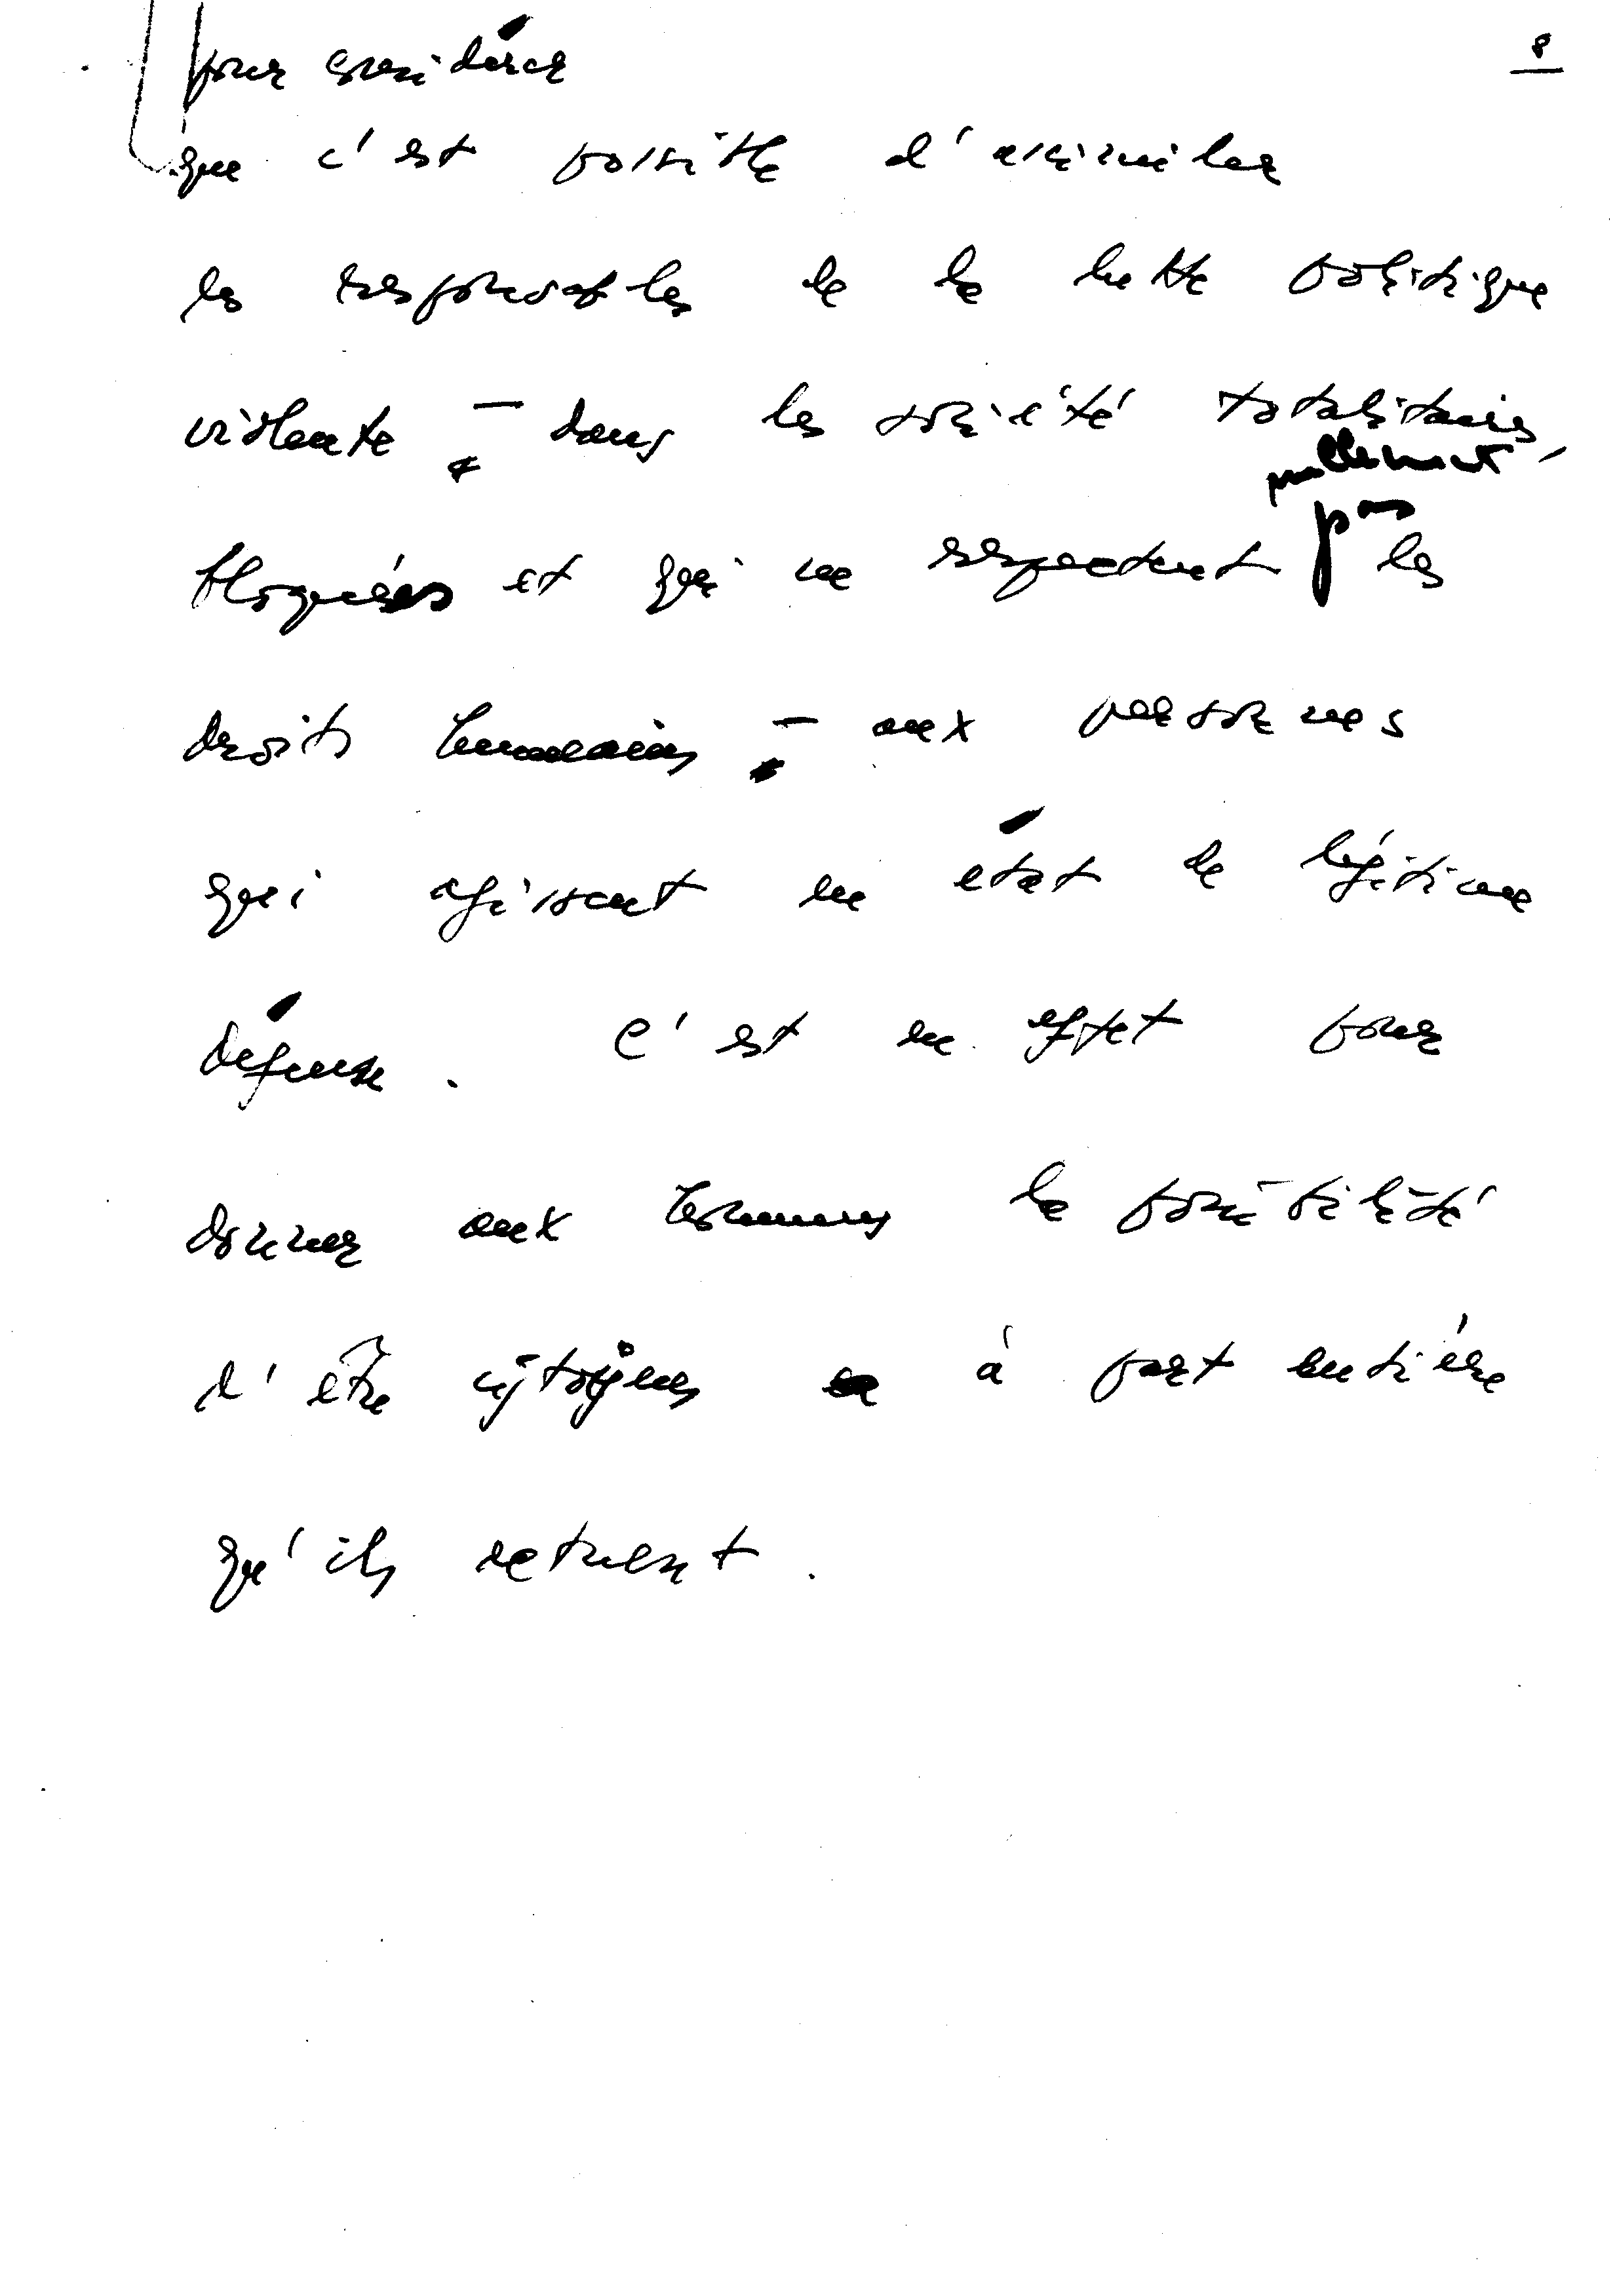 8
pour considérer
que c'est possible d'assimiler
les responsables de la lutte politique
violente – dans les société totalitaires,
nullement
bloquées et qui ne respectent pas les
droits humains – aux personnes
qui agissent en état de légitime
défense. C'est en effet pour
donner aux hommes la possibilité
d'être cytoyens à part entière
qu'ils